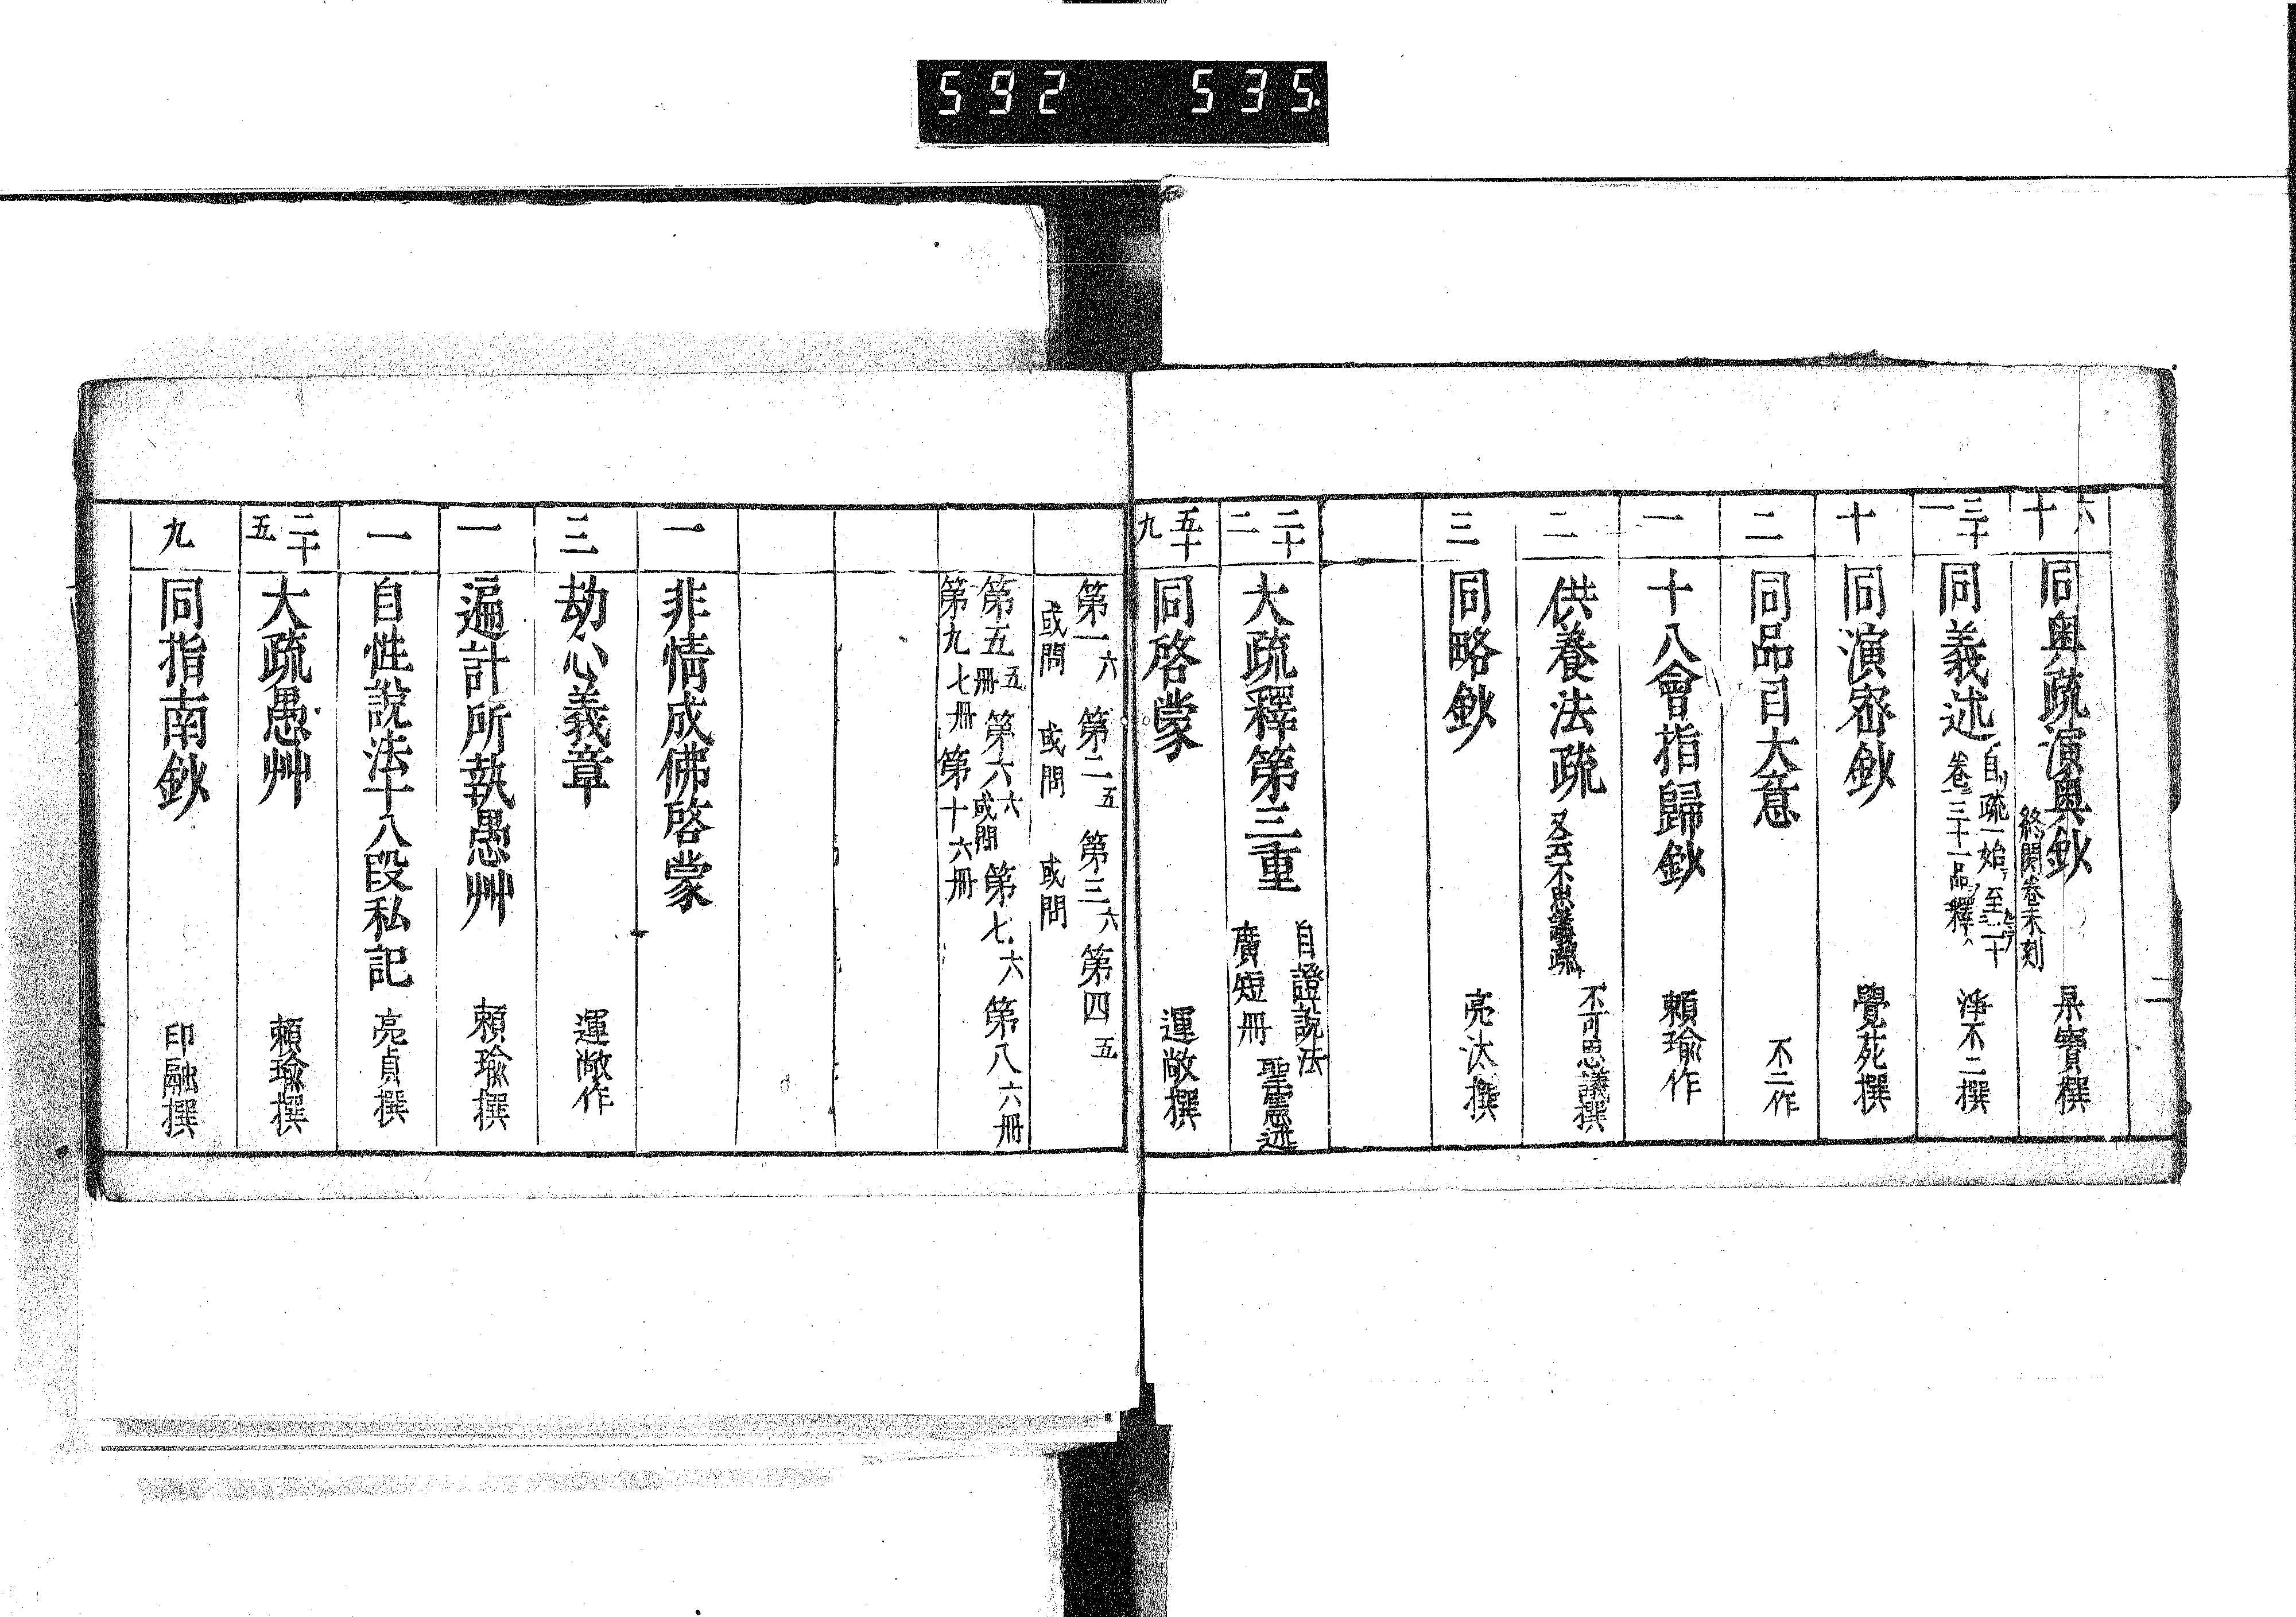 592 535.
二
六十 同奥疏演奥鈔 終闕卷末刻 杲寶撰
三十一 同義述 自疏一始至二十卷三十一品釋 淨不二撰
十 同演密鈔 覺苑撰
二 同品目大意 不二作
一 十八會指歸鈔 頼瑜作
二 供養法疏 又云不思議疏 不可思議撰
三 同略鈔 亮汰撰
二十二 大疏釋第三重 自證説法 廣短冊 聖憲述
五十九 同啓蒙 運敞撰
第一六或問 第二五或問 第三六或問 第四五
第五五冊 第六六或問 第七六 第八六冊
第九七冊 第十六冊
一 非情成佛啓蒙
三 劫心義章 運敞作
一 遍計所執愚艸 頼瑜撰
一 自性説法十八段私記 亮貞撰
二十五 大疏愚艸 頼瑜撰
九 同指南鈔 印融撰